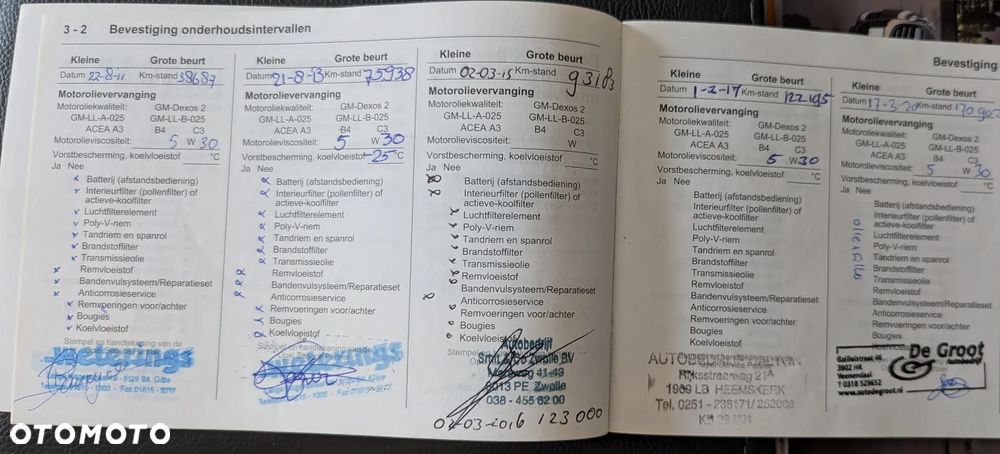 3 - 2 Bevestiging onderhoudsintervallen
Kleine Grote beurt
Datum 22-8-11 Km-stand 38687
Motorolievervanging
Motoroliekwaliteit: GM-Dexos 2
GM-LL-A-025 GM-LL-B-025
ACEA A3 B4 C3
Motorolieviscositeit: 5 W 30
Vorstbescherming, koelvloeistof °C
Ja Nee
Batterij (afstandsbediening)
Interieurfilter (pollenfilter) of
actieve-koolfilter
Luchtfilterelement
Poly-V-riem
Tandriem en spanrol
Brandstoffilter
Transmissieolie
Remvloeistof
Bandenvulsysteem/Reparatieset
Anticorrosieservice
Remvoeringen voor/achter
Bougies
Koelvloeistof
Stempel en handtekening van de
Kleine Grote beurt
Datum 21-8-13 Km-stand 75938
Motorolievervanging
Motoroliekwaliteit: GM-Dexos 2
GM-LL-A-025 GM-LL-B-025
ACEA A3 B4 C3
Motorolieviscositeit: 5 W 30
Vorstbescherming, koelvloeistof -25 °C
Ja Nee
Batterij (afstandsbediening)
Interieurfilter (pollenfilter) of
actieve-koolfilter
Luchtfilterelement
Poly-V-riem
Tandriem en spanrol
Brandstoffilter
Transmissieolie
Remvloeistof
Bandenvulsysteem/Reparatieset
Anticorrosieservice
Remvoeringen voor/achter
Bougies
Koelvloeistof
Stempel en handtekening van de
Kleine Grote beurt
Datum 02-03-15 Km-stand 93183
Motorolievervanging
Motoroliekwaliteit: GM-Dexos 2
GM-LL-A-025 GM-LL-B-025
ACEA A3 B4 C3
Motorolieviscositeit: W
Vorstbescherming, koelvloeistof °C
Ja Nee
Batterij (afstandsbediening)
Interieurfilter (pollenfilter) of
actieve-koolfilter
Luchtfilterelement
Poly-V-riem
Tandriem en spanrol
Brandstoffilter
Transmissieolie
Remvloeistof
Bandenvulsysteem/Reparatieset
Anticorrosieservice
Remvoeringen voor/achter
Bougies
Koelvloeistof
Autobedrijf
Zwolle BV
41-43
8013 PE Zwolle
038 - 455 62 00
02-03-2016 123 000
Bevestiging
Kleine Grote beurt
Datum 1-2-17 Km-stand 122195
Motorolievervanging
Motoroliekwaliteit: GM-Dexos 2
GM-LL-A-025 GM-LL-B-025
ACEA A3 B4 C3
Motorolieviscositeit: 5 W 30
Vorstbescherming, koelvloeistof °C
Ja Nee
Batterij (afstandsbediening)
Interieurfilter (pollenfilter) of
actieve-koolfilter
Luchtfilterelement
Poly-V-riem
Tandriem en spanrol
Brandstoffilter
Transmissieolie
Remvloeistof
Bandenvulsysteem/Reparatieset
Anticorrosieservice
Remvoeringen voor/achter
Bougies
Koelvloeistof
Rijksstraatweg 21A
1969 LB HEEMSKERK
Tel. 0251 - 238171/
Kleine Grote beurt
Datum 17-3-20 Km-stand
Motorolievervanging
Motoroliekwaliteit: GM-Dexos 2
GM-LL-A-025 GM-LL-B-025
ACEA A3 B4 C3
Motorolieviscositeit: 5 W 30
Vorstbescherming, koelvloeistof °C
Ja Nee
Batterij (afstandsbediening)
Interieurfilter (pollenfilter) of
actieve-koolfilter
Luchtfilterelement
Poly-V-riem
Tandriem en spanrol
Brandstoffilter
Transmissieolie
Remvloeistof
Bandenvulsysteem/Reparatieset
Anticorrosieservice
Remvoeringen voor/achter
Bougies
olie+filter
De Groot
Autobedrijf
3902 HK
Veenendaal
T 0318 529652
www.autodegroot.nl
OTOMOTO